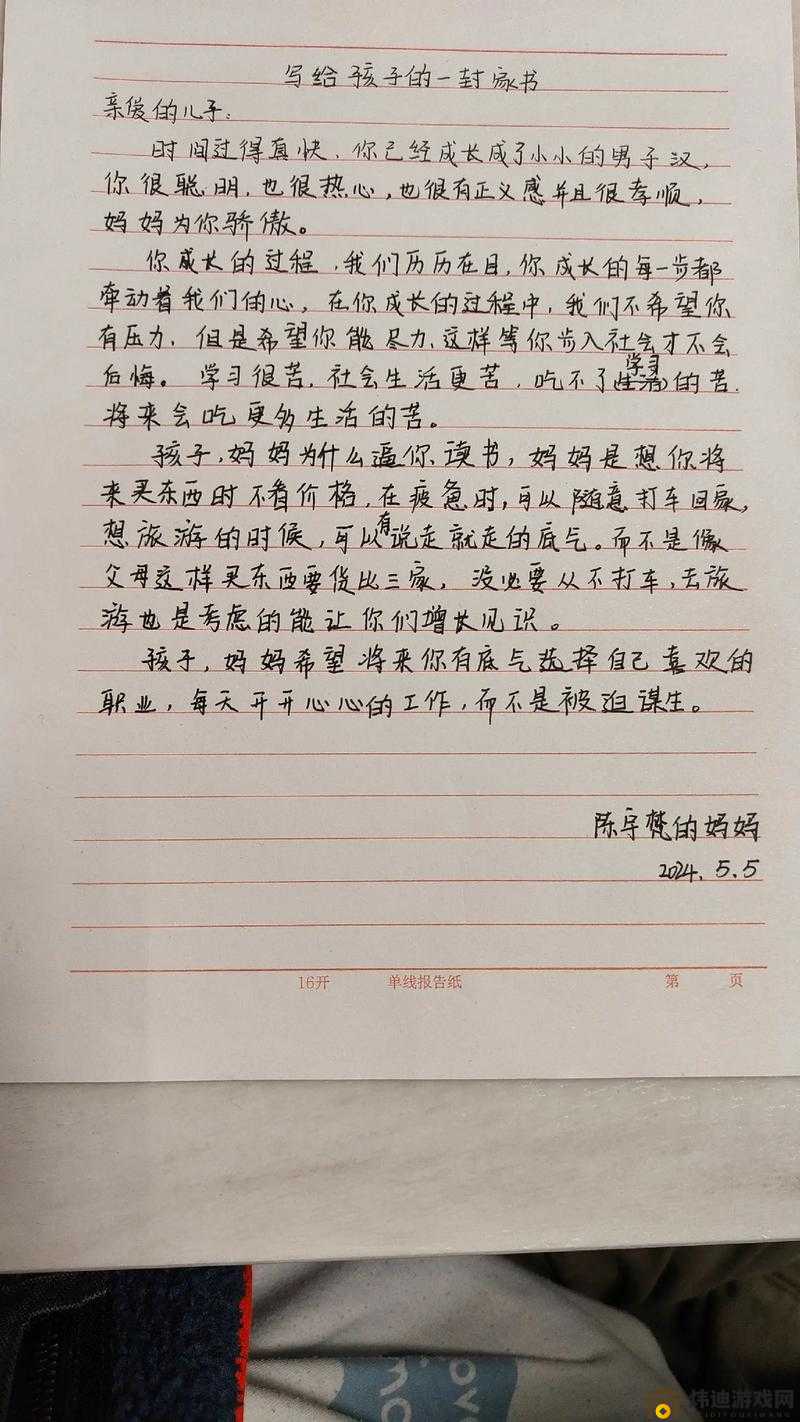 写给孩子的一封家书
亲爱的儿子:
时间过得真快、你已经成长成了小小的男子汉,
你很聪明,也很热心,也很有正义感并且很孝顺,
妈妈为你骄傲。
你成长的过程,我们历历在目,你成长的每一步都
牵动着我们的心。在你成长的过程中,我们不希望你
有压力,但是希望你能尽力、这样等你步入社会才不会
后悔。学习很苦,社会生活更苦,吃不了学习的苦,
将来会吃更多生活的苦。
孩子,妈妈为什么逼你读书,妈妈是想你将
来买东西时不看价格,在疲惫时,可以随意打车回家,
想旅游的时候,可以有说走就走的底气。而不是像
父母这样买东西要货比三家,没必要从不打车,去旅
游也是考虑的能让你们增长见识。
孩子,妈妈希望将来你有底气选择自己喜欢的
职业,每天开开心心的工作,而不是被迫谋生。
陈宇梵的妈妈
2024.5.5
16开 单线报告纸 第 页
love
炜迪游戏网